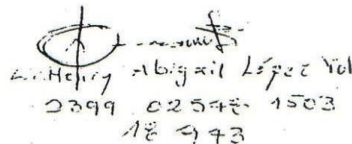 Henry Abigail López Yol
2399 02548 1503
18 943